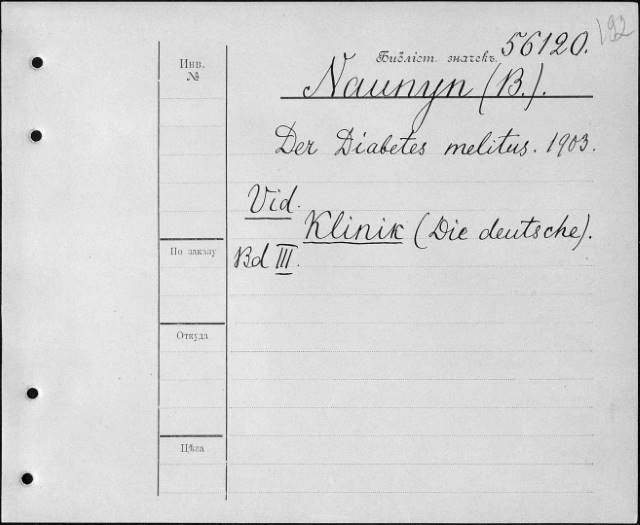 192
Библіот. значекъ. 56120.
Инв.
№
Naunyn (B.).
Der Diabetes melitus. 1903.
Vid.
Klinik (Die deutsche).
По заказу
Bd III.
Откуда
Цѣна